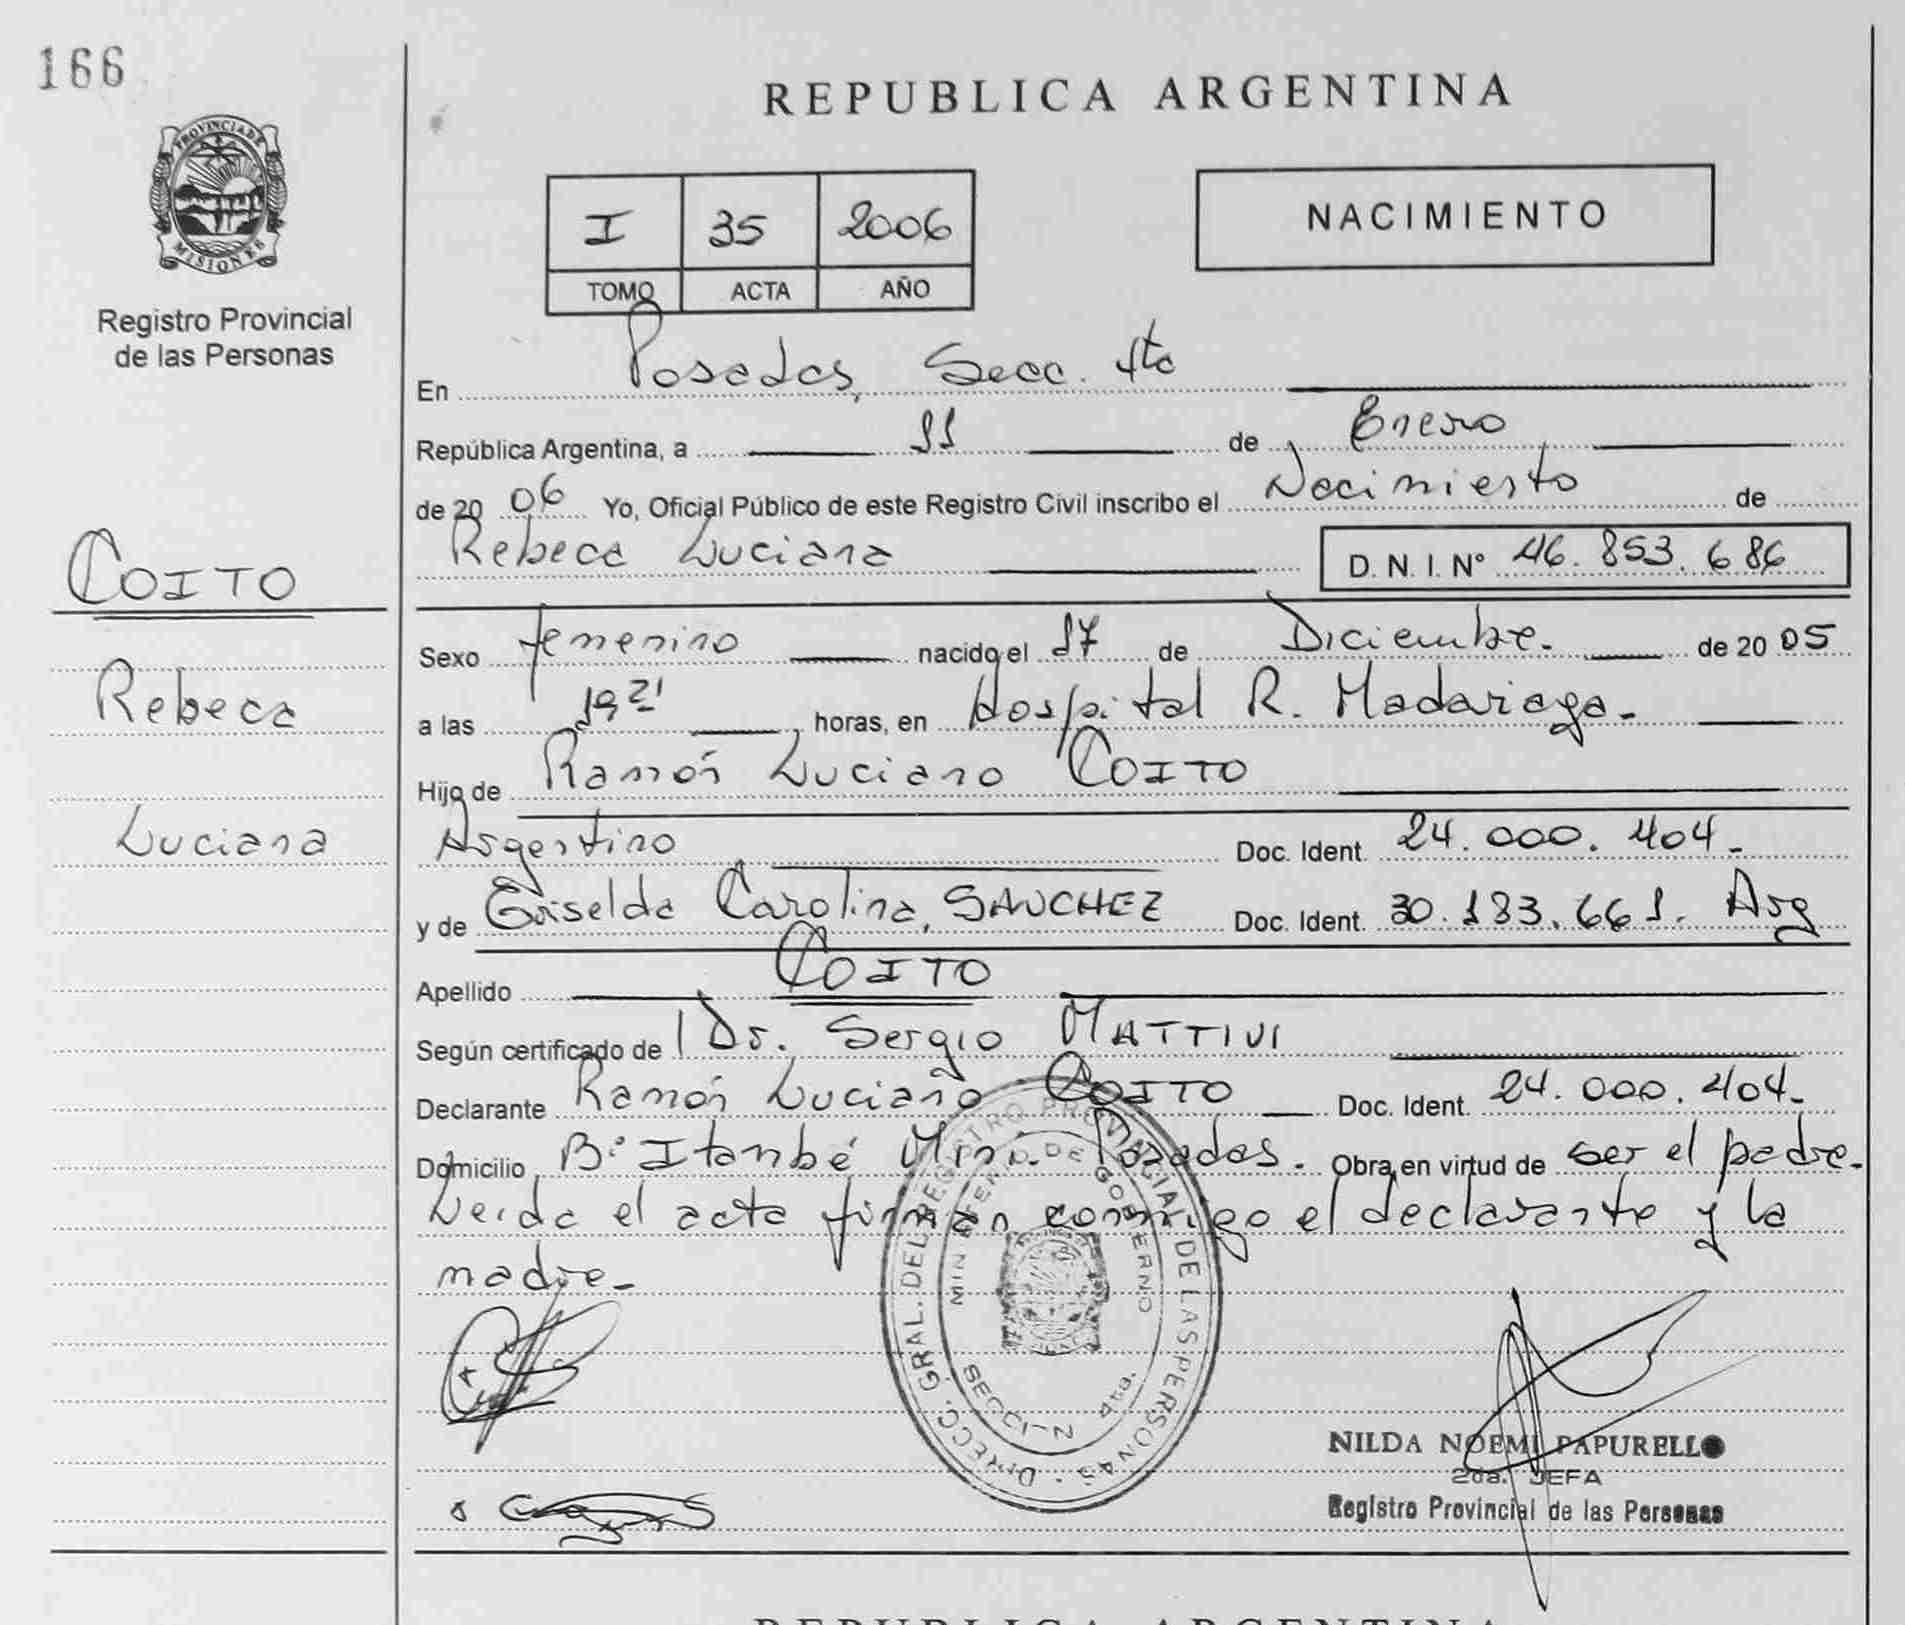 166
PROVINCIA DE
MISIONES
Registro Provincial
de las Personas
COITO
Rebeca
Luciana
REPUBLICA ARGENTINA
I 35 2006
TOMO ACTA AÑO
NACIMIENTO
En Posadas, Secc. 4ta
República Argentina, a 11 de Enero
de 20 06 Yo, Oficial Público de este Registro Civil inscribo el Nacimiento de
Rebeca Luciana D. N. I. Nº 46.853.686
Sexo femenino nacido el 17 de Diciembre. de 20 05
a las 19 21 horas, en Hospital R. Madariaga.
Hijo de Ramón Luciano COITO
Argentino Doc. Ident. 24.000.404.
y de Griselda Carolina, SANCHEZ Doc. Ident. 30.183.661. Arg
Apellido COITO
Según certificado de Dr. Sergio MATTIVI
Declarante Ramón Luciano COITO Doc. Ident. 24.000.404.
Domicilio Bº Itambé Miní. Posadas. Obra en virtud de ser el padre.
Leída el acta firman conmigo el declarante y la
madre.
DIRECC. GRAL. DEL REGISTRO PROVINCIAL DE LAS PERSONAS
MINISTERIO DE GOBIERNO
SECCI-N 4ta.
NILDA NOEMI PAPURELLO
2da. JEFA
Registro Provincial de las Personas
REPUBLICA ARGENTINA